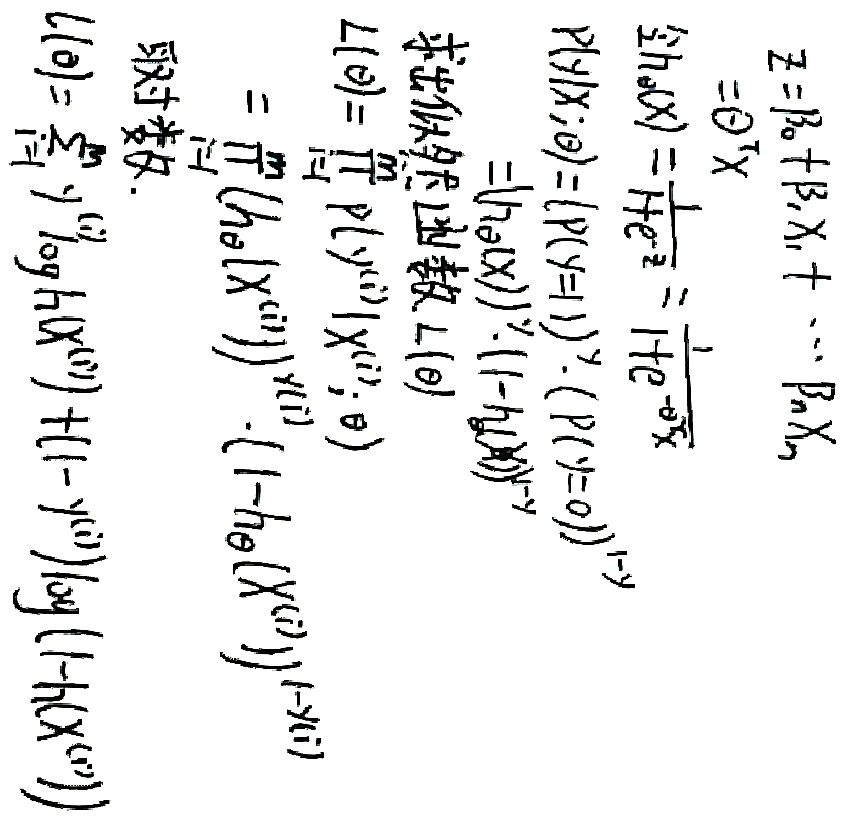 z = β₀ + β₁x₁ + … βₙxₙ
= θᵀx
令h_θ(x) = 1/(1+e^{-z}) = 1/(1+e^{-θᵀx})
P(y|x;θ) = (P(y=1))^y · (P(y=0))^{1-y}
= (h_θ(x))^y · (1-h_θ(x))^{1-y}
求出似然函数 L(θ)
L(θ) = ∏_{i=1}^{m} P(y^{(i)}|x^{(i)};θ)
= ∏_{i=1}^{m} (h_θ(x^{(i)}))^{y^{(i)}} · (1-h_θ(x^{(i)}))^{1-y^{(i)}}
取对数.
L(θ) = ∑_{i=1}^{m} y^{(i)} log h(x^{(i)}) + (1-y^{(i)}) log(1-h(x^{(i)}))